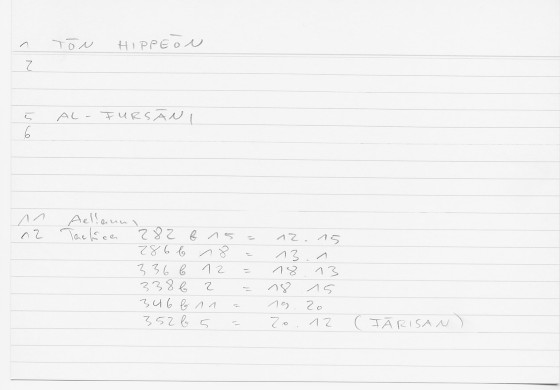 1 TŌN HIPPEŌN
2
5 AL-FURSĀNI
6
11 Aelianus,
12 Tactica 282 b 15 = 12.15
286 b 18 = 13.1
336 b 12 = 18 13
338 b 2 = 18 15
346 b 11 = 19.20
352 b 5 = 20.12 (FĀRISAN)